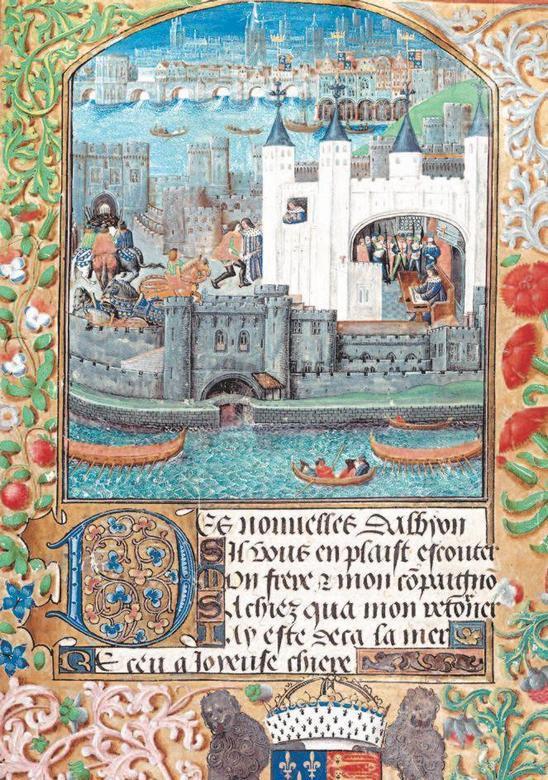 Des nouuelles Dalbyon
Sil vous en plaist escouter
Mon frere ⁊ mon cõpaigno
Sachiez qua mon retorner
Iay este deca la mer
Receu a Ioyeuse chiere